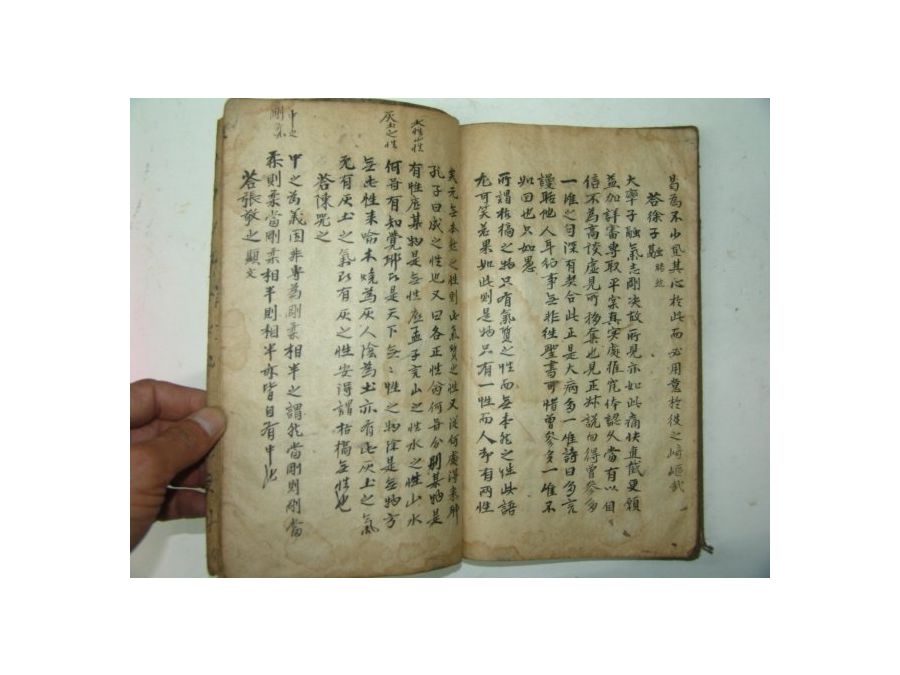 曷爲不少置其心於此而必用意於彼之崎嶇哉
答徐子融
大率子融氣志剛決故所見亦如此痛快直截更願
益加詳審專取平實真實處推究体認久當有以自
信不爲高談虛見所移奪也見正叔説向得曾參多
一唯之句深有契合此正是大病多一唯詩曰多言
謹聆他人耳幻事無非徃聖書可惜曾參多一唯不
如回也只如愚
所謂枯槁之物只有氣質之性而無本然之性此語
尤可笑若果如此則是物只有一性而人却有兩性
矣元無本然之性則此氣質之性又從何處得來耶
孔子曰成之性也又曰各正性命何嘗分別某物是
有性底某物是無性底孟子言山之性水之性山水
何嘗有知覺耶是天下無無性之物除是無物方
無此性来喻木燒爲灰人陰爲土亦有此灰土之氣
既有灰土之氣即有灰土之性安得謂枯槁無性也
答陳咒之
中之爲義固非專爲剛柔相半之謂然當剛則剛當
柔則柔當剛柔相半則相半亦皆自有中也
答張敬之顯文
灰土之性
中之
剛